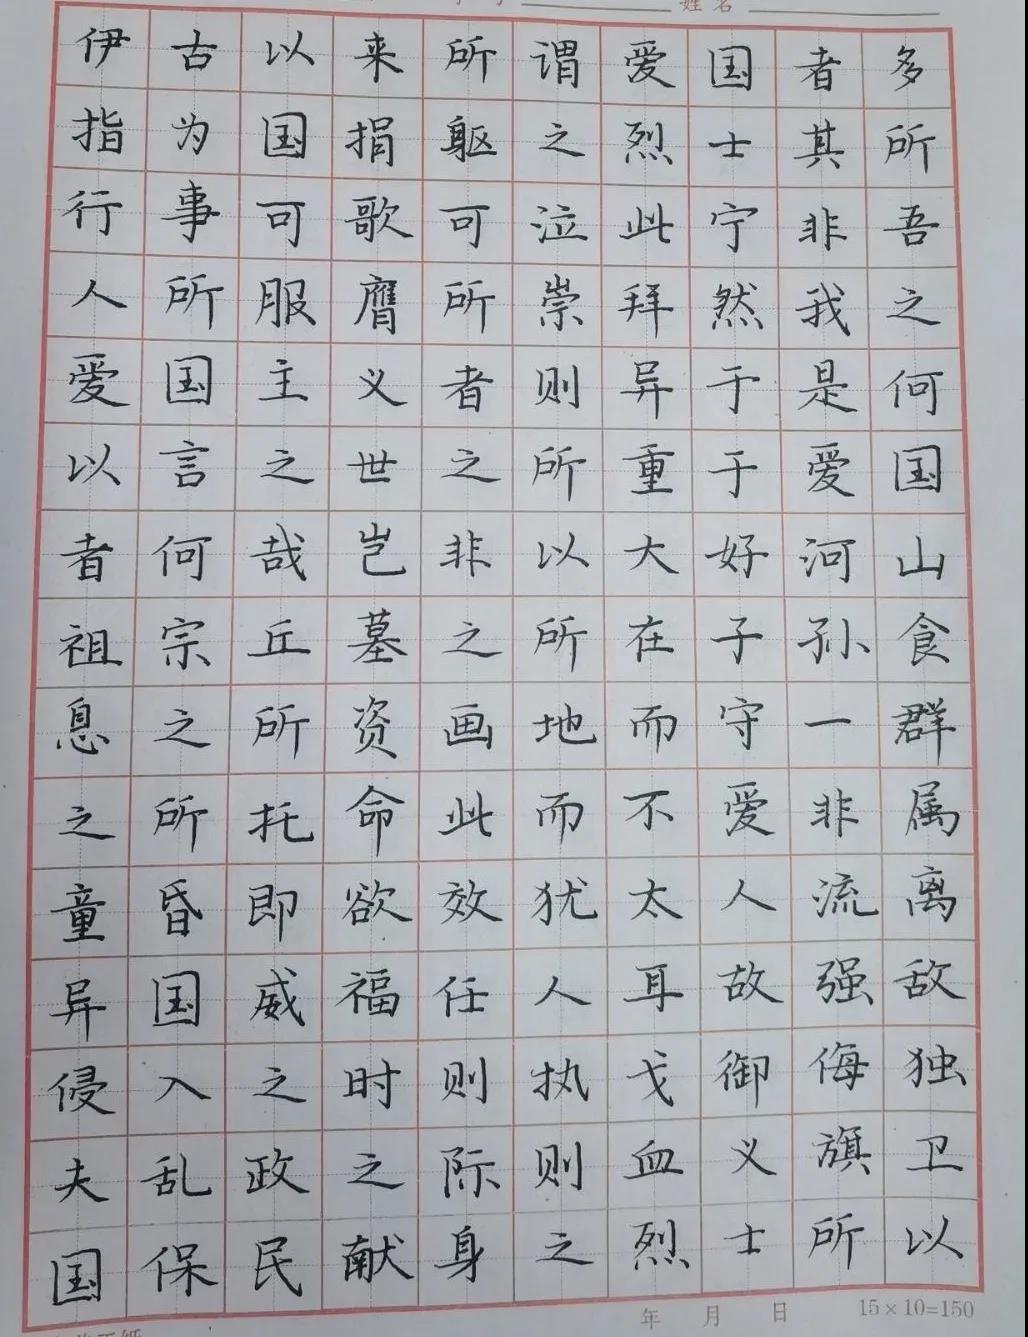 姓名
伊古以来所谓爱国者多
指为国捐躯之烈士其所
行事可歌可泣此宁非吾
人所服膺所崇拜然我之
爱国主义者则异于是何
以言之世之所重于爱国
者何哉岂非以大好河山
祖宗丘墓之所在子孙食
息之所资画地而守一群
之所托命此而不爱非属
童昏即欲效犹太人流离
异国威福任人耳故强敌
侵入之时则执戈御侮独
夫乱政之际则血义旗卫
国保民献身之烈士所以
年 月 日 15×10=150